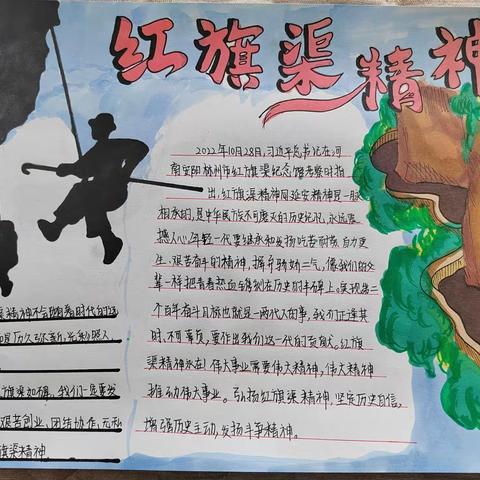 红旗渠精神
2022年10月28日,习近平总书记在河
南安阳林州市红旗渠纪念馆考察时指
出,红旗渠精神同延安精神是一脉
相承的,是中华民族不可磨灭的历史记忆,永远震
撼人心。年轻一代要继承和发扬吃苦耐劳、自力更
生、艰苦奋斗的精神,摒弃骄娇二气,像我们的父
辈一样把青春热血镌刻在历史的丰碑上。实现第二
个百年奋斗目标也就是一两代人的事,我们正逢其
时、不可辜负,要作出我们这一代的贡献。红旗
渠精神永在!伟大事业需要伟大精神,伟大精神
推动伟大事业。弘扬红旗渠精神,坚定历史自信,
增强历史主动,发扬斗争精神。
精神不会随着时代的
历久弥新,光彩照人。
旗渠如旗,我们一定要发
艰苦创业、团结协作、无私
旗渠精神